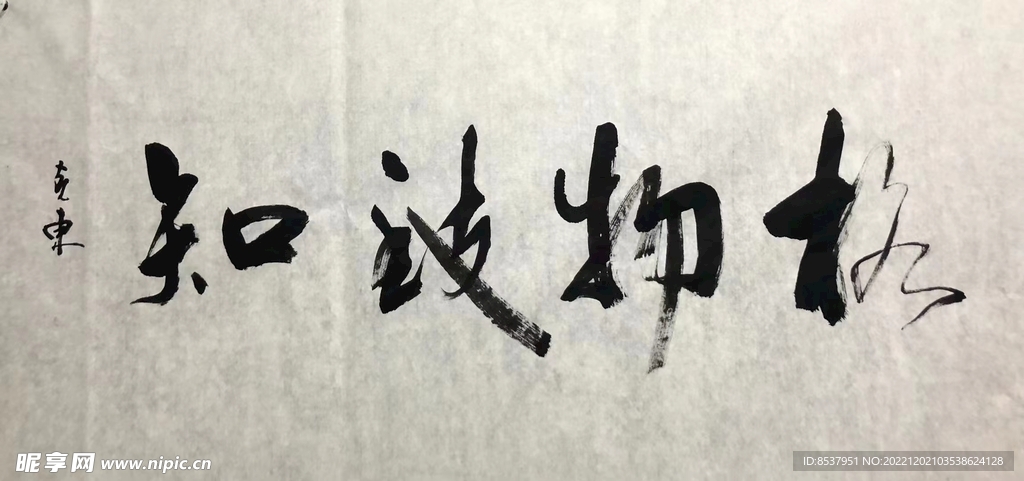 格物致知
克東
昵享网 www.nipic.cn
ID:8537951 NO:20221202103538624128